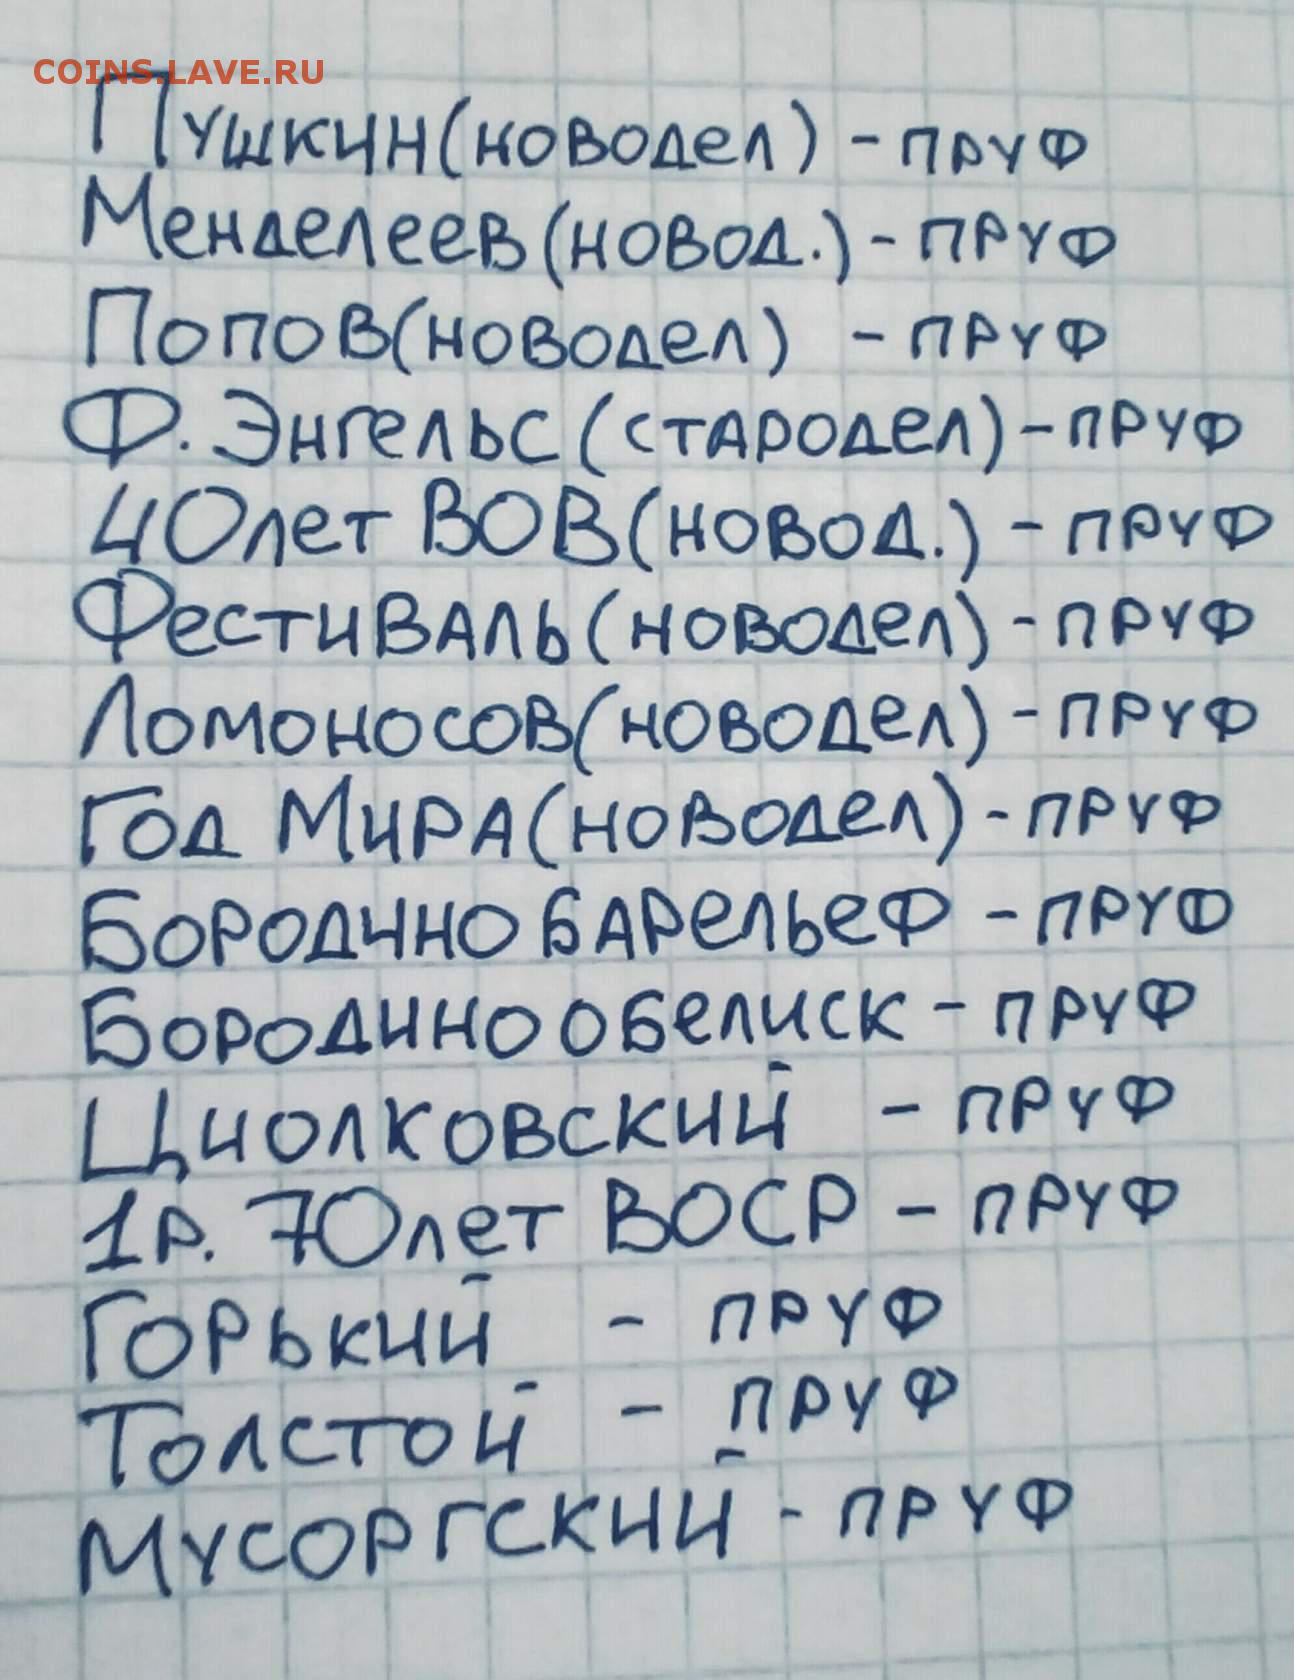 COINS.LAVE.RU
Пушкин(новодел) - пруф
Менделеев(новод.) - пруф
Попов(новодел) - пруф
Ф. Энгельс(стародел) - пруф
40лет ВОВ(новод.) - пруф
Фестиваль(новодел) - пруф
Ломоносов(новодел) - пруф
Год Мира(новодел) - пруф
Бородино барельеф - пруф
Бородино обелиск - пруф
Циолковский - пруф
1р. 70лет ВОСР - пруф
Горький - пруф
Толстой - пруф
Мусоргский - пруф